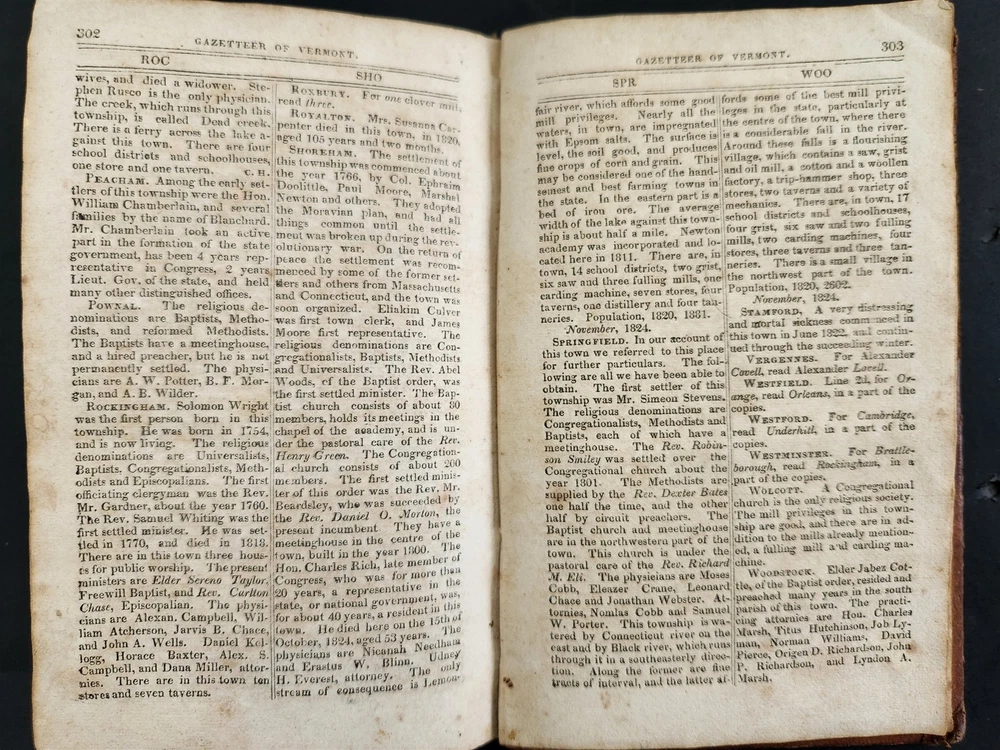 302
GAZETTEER OF VERMONT.
ROC
SHO
wives, and died a widower. Ste-
phen Rusco is the only physician.
The creek, which runs through this
township, is called Dead creek.
There is a ferry across the lake a-
gainst this town. There are four
school districts and schoolhouses,
one store and one tavern. C. H.
PEACHAM. Among the early set-
tlers of this township were the Hon.
William Chamberlain, and several
families by the name of Blanchard.
Mr. Chamberlain took an active
part in the formation of the state
government, has been 4 years rep-
resentative in Congress, 2 years
Lieut. Gov. of the state, and held
many other distinguished offices.
POWNAL. The religious de-
nominations are Baptists, Metho-
dists, and reformed Methodists.
The Baptists have a meetinghouse,
and a hired preacher, but he is not
permanently settled. The physi-
cians are A. W. Potter, B. F. Mor-
gan, and A. B. Wilder.
ROCKINGHAM. Solomon Wright
was the first person born in this
township. He was born in 1754,
and is now living. The religious
denominations are Universalists,
Baptists, Congregationalists, Meth-
odists and Episcopalians. The first
officiating clergyman was the Rev.
Mr. Gardner, about the year 1760.
The Rev. Samuel Whiting was the
first settled minister. He was set-
tled in 1770, and died in 1818.
There are in this town three hous-
es for public worship. The present
ministers are Elder Sereno Taylor,
Freewill Baptist, and Rev. Carlton
Chase, Episcopalian. The physi-
cians are Alexan. Campbell, Wil-
liam Atcherson, Jarvis B. Chace,
and John A. Wells. Daniel Kel-
logg, Horace Baxter, Alex. S.
Campbell, and Dana Miller, attor-
nies. There are in this town ten
stores and seven taverns.
ROXBURY. For one clover mill,
read three.
ROYALTON. Mrs. Susanna Car-
penter died in this town, in 1820,
aged 105 years and two months.
SHOREHAM. The settlement of
this township was commenced about
the year 1766, by Col. Ephraim
Doolittle, Paul Moore, Marshal
Newton and others. They adopted
the Moravian plan, and had all
things common until the settle-
ment was broken up during the rev-
olutionary war. On the return of
peace the settlement was recom-
menced by some of the former set-
tlers and others from Massachusetts
and Connecticut, and the town was
soon organized. Eliakim Culver
was first town clerk, and James
Moore first representative. The
religious denominations are Con-
gregationalists, Baptists, Methodists
and Universalists. The Rev. Abel
Woods, of the Baptist order, was
the first settled minister. The Bap-
tist church consists of about 80
members, holds its meetings in the
chapel of the academy, and is un-
der the pastoral care of the Rev.
Henry Green. The Congregation-
al church consists of about 200
members. The first settled minis-
ter of this order was the Rev. Mr.
Beardsley, who was succeeded by
the Rev. Daniel O. Morton, the
present incumbent They have a
meetinghouse in the centre of the
town, built in the year 1800. The
Hon. Charles Rich, late member of
Congress, who was for more than
20 years, a representative in the
state, or national government, was,
for about 40 years, a resident in this
town. He died here on the 15th of
October, 1824, aged 53 years. The
physicians are Nicanah Needham
and Erastus W. Blinn. Udney
H. Everest, attorney. The only
stream of consequence is Lemon-
303
GAZETTEER OF VERMONT.
SPR
WOO
fair river, which affords some good
mill privileges. Nearly all the
waters, in town, are impregnated
with Epsom salts. The surface is
level, the soil good, and produces
fine crops of corn and grain. This
may be considered one of the hand-
somest and best farming towns in
the state. In the eastern part is a
bed of iron ore. The average
width of the lake against this town-
ship is about half a mile. Newton
academy was incorporated and lo-
cated here in 1811. There are, in
town, 14 school districts, two grist,
six saw and three fulling mills, one
carding machine, seven stores, four
taverns, one distillery and four tan-
neries. Population, 1820, 1881.
November, 1824.
SPRINGFIELD. In our account of
this town we referred to this place
for further particulars. The fol-
lowing are all we have been able to
obtain. The first settler of this
township was Mr. Simeon Stevens.
The religious denominations are
Congregationalists, Methodists and
Baptists, each of which have a
meetinghouse. The Rev. Robin-
son Smiley was settled over the
Congregational church about the
year 1801. The Methodists are
supplied by the Rev. Dexter Bates
one half the time, and the other
half by circuit preachers. The
Baptist church and meetinghouse
are in the northwestern part of the
town. This church is under the
pastoral care of the Rev. Richard
M. Eli. The physicians are Moses
Cobb, Eleazer Crane, Leonard
Chace and Jonathan Webster. At-
tornies, Nomlas Cobb and Samuel
W. Porter. This township is wa-
tered by Connecticut river on the
east and by Black river, which runs
through it in a southeasterly direc-
tion. Along the former are fine
tracts of interval, and the latter af-
fords some of the best mill privi-
leges in the state, particularly at
the centre of the town, where there
is a considerable fall in the river.
Around these falls is a flourishing
village, which contains a saw, grist
and oil mill, a cotton and a woollen
factory, a trip-hammer shop, three
stores, two taverns and a variety of
mechanics. There are, in town, 17
school districts and schoolhouses,
four grist, six saw and two fulling
mills, two carding machines, four
stores, three taverns and three tan-
neries. There is a small village in
the northwest part of the town.
Population, 1820, 2602.
November, 1824.
STAMFORD. A very distressing
and mortal sickness commenced in
this town in June 1822, and contin-
ued through the succeeding winter.
VERGENNES. For Alexander
Covell, read Alexander Lovell.
WESTFIELD. Line 2d, for Or-
ange, read Orleans, in a part of the
copies.
WESTFORD. For Cambridge,
read Underhill, in a part of the
copies.
WESTMINSTER. For Brattle-
borough, read Rockingham, in a
part of the copies.
WOLCOTT. A Congregational
church is the only religious society.
The mill privileges in this town-
ship are good, and there are in ad-
dition to the mills already mention-
ed, a fulling mill and carding ma-
chine.
WOODSTOCK. Elder Jabez Cot-
tle, of the Baptist order, resided and
preached many years in the south
parish of this town. The practi-
cing attornies are Hon. Charles
Marsh, Titus Hutchinson, Job Ly-
man, Norman Williams, David
Pierce, Origen D. Richardson, John
P. Richardson, and Lyndon A.
Marsh.